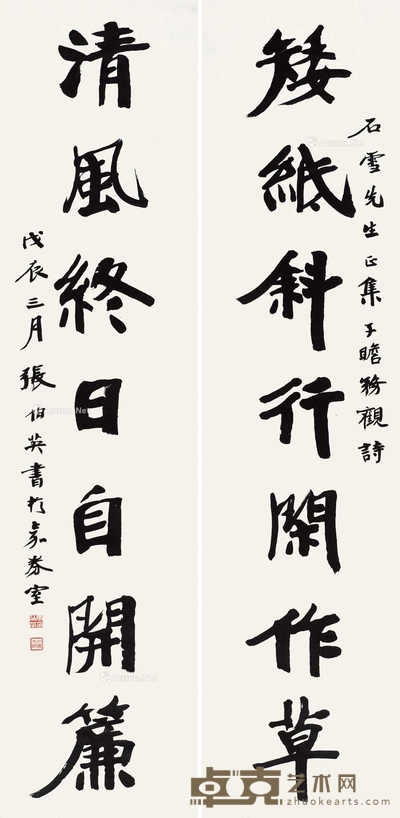 矮紙斜行閑作草
石雪先生正集子瞻務觀詩
清風終日自開簾
戊辰三月張伯英書於
卓克艺术网
zhuokearts.com